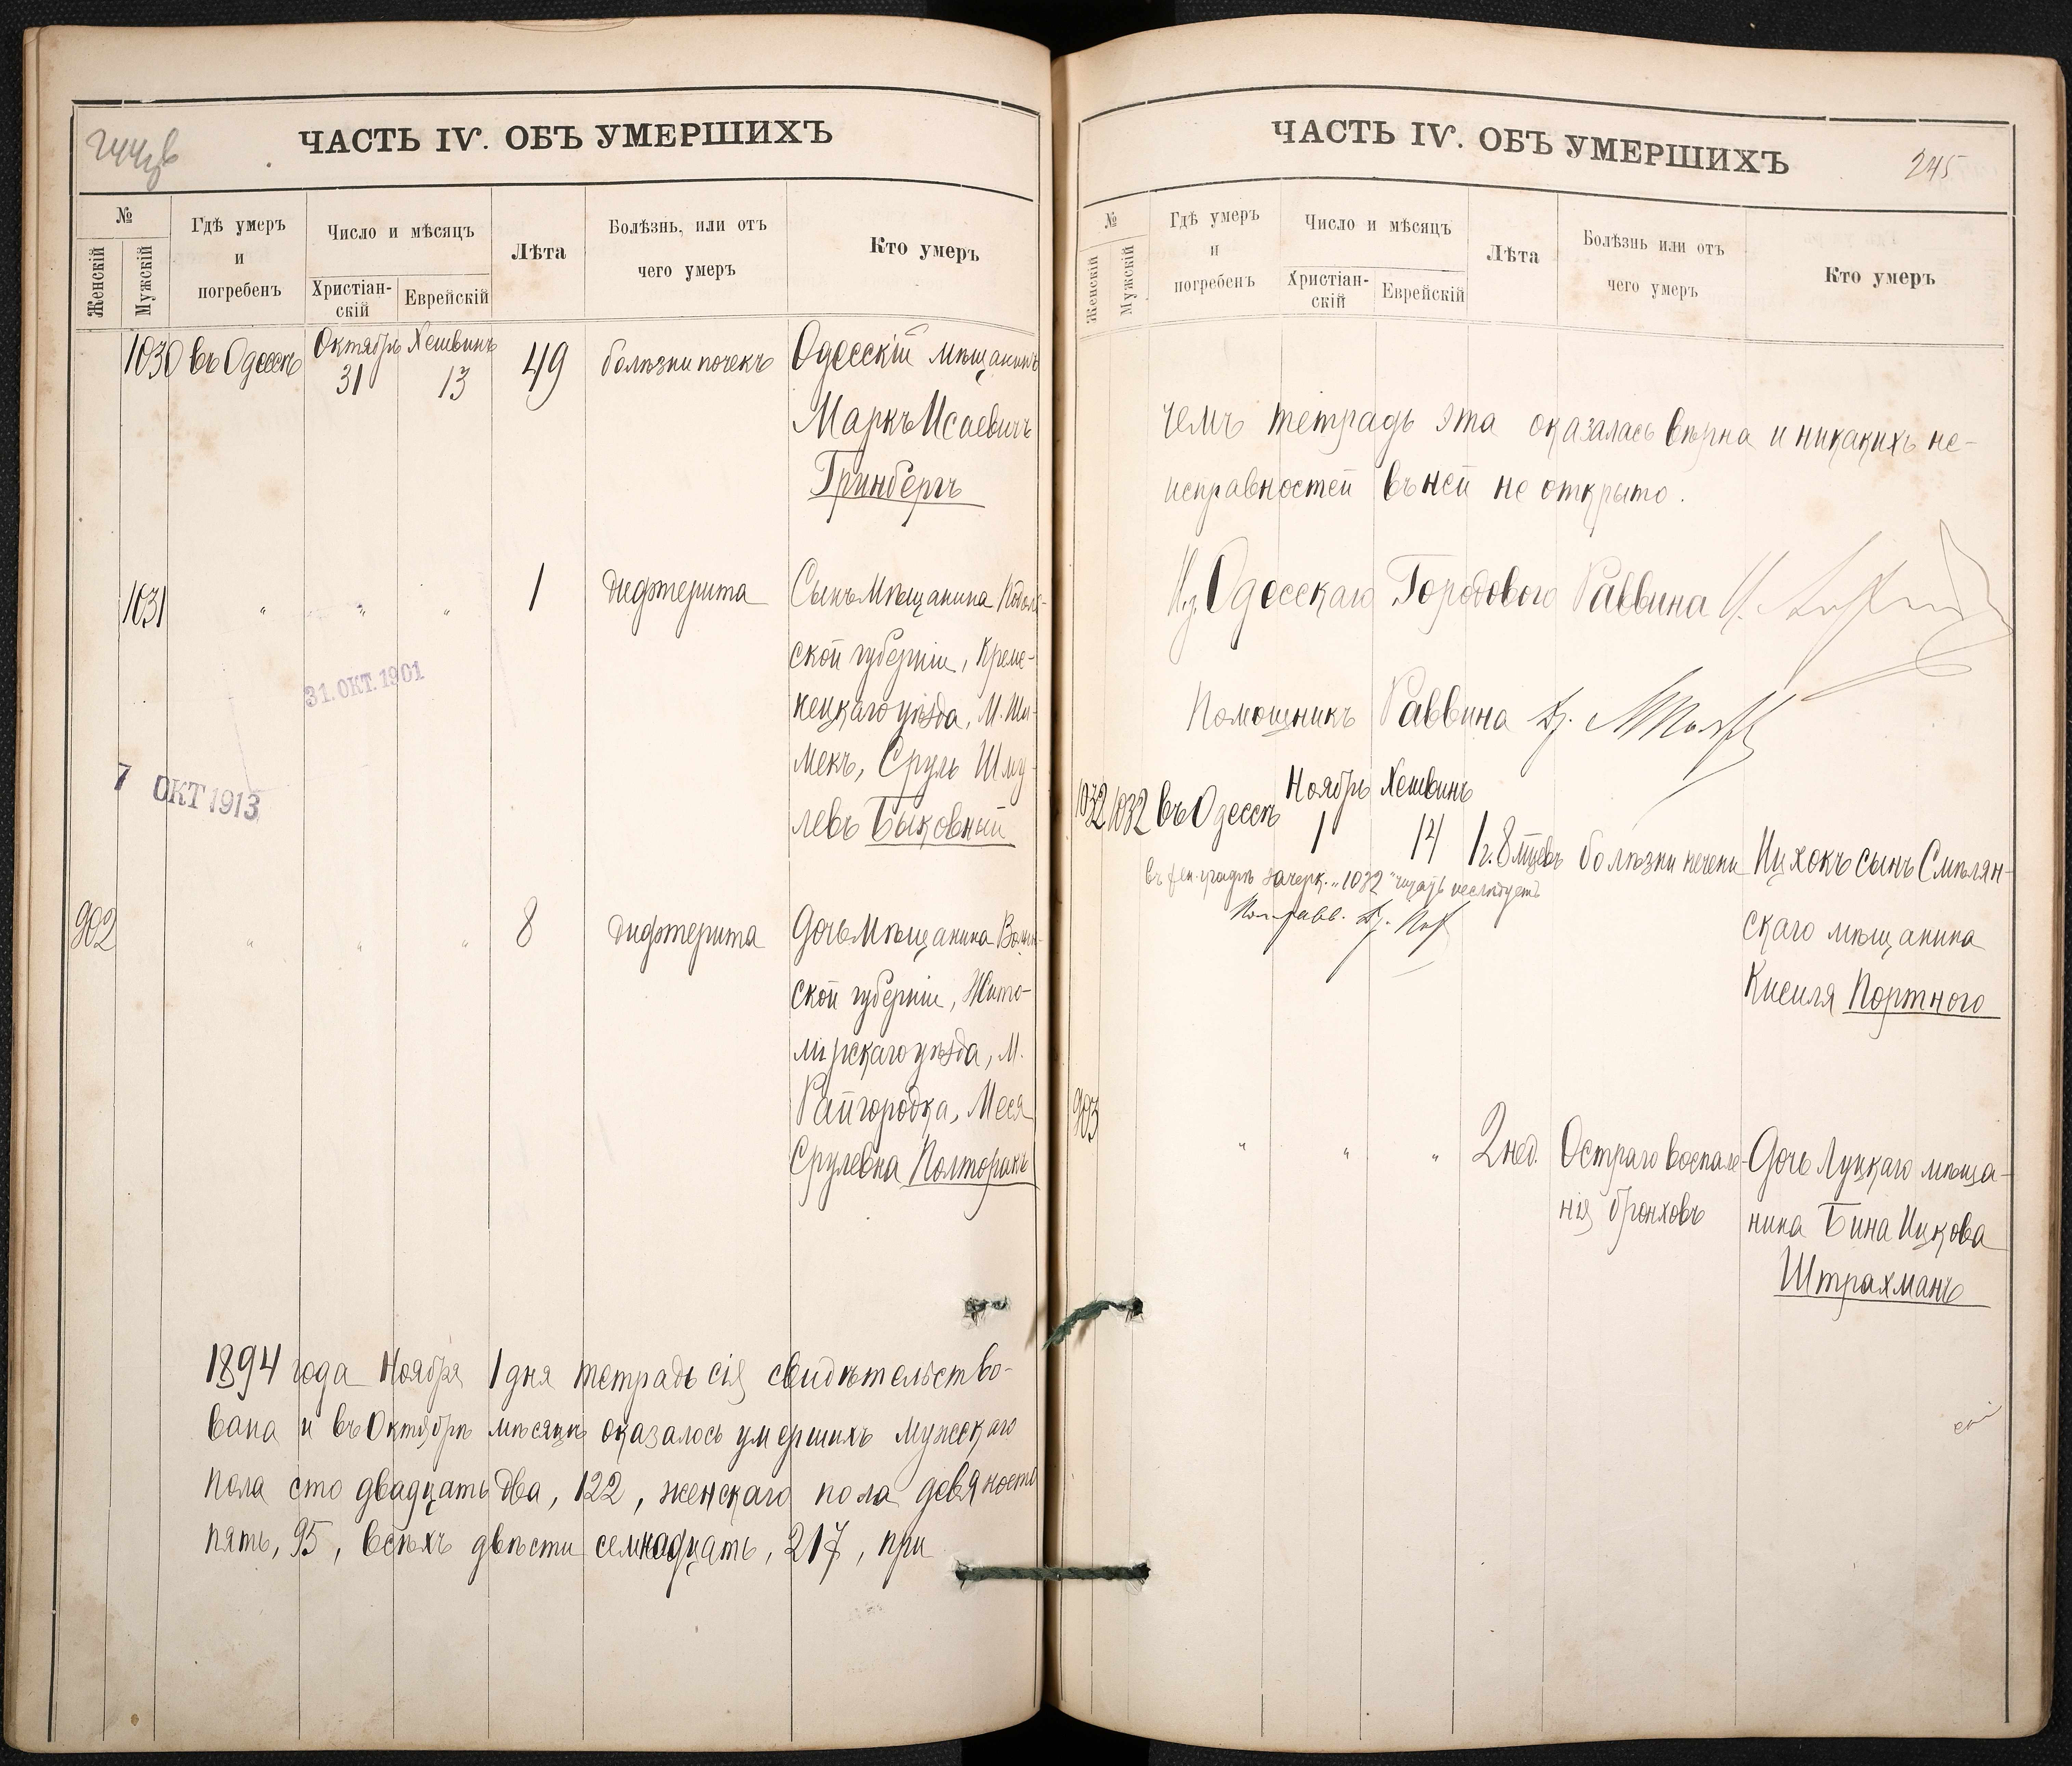 244об
ЧАСТЬ IV. ОБЪ УМЕРШИХЪ
№
Женскій
Мужскій
Гдѣ умеръ
и
погребенъ
Число и мѣсяцъ
Христіан-
скій
Еврейскій
Лѣта
Болѣзнь, или отъ
чего умеръ
Кто умеръ
1030 въ Одессѣ Октябрь 31 Хешвинъ 13 49 болѣзни почекъ Одесскій мѣщанинъ
Маркъ Исаевичъ
Гринбергъ
1031 " " " 1 дифтерита Сынъ мѣщанина Подоль-
ской губерніи, Креме-
нецкаго уѣзда, М. Шу-
мекъ, Сруль Шму-
левъ Быковный
31. ОКТ. 1901
7 ОКТ 1913
902 " " " 8 дифтерита Дочь мѣщанина Волын-
ской губерніи, Жито-
мірскаго уѣзда, М.
Райгородка, Меся
Срулевна Полторакъ
1894 года Ноября 1 дня тетрадь сія свидѣтельство-
вана и въ Октябрѣ мѣсяцѣ оказалось умершихъ мужскаго
пола сто двадцать два, 122, женскаго пола девяносто
пять, 95, всѣхъ двѣсти семнадцать, 217, при
ЧАСТЬ IV. ОБЪ УМЕРШИХЪ
245
№
Женскій
Мужскій
Гдѣ умеръ
и
погребенъ
Число и мѣсяцъ
Христіан-
скій
Еврейскій
Лѣта
Болѣзнь или отъ
чего умеръ
Кто умеръ
чемъ тетрадь эта оказалась вѣрна и никакихъ не-
исправностей въ ней не открыто.
Одесскаго Городового Раввина
Помощникъ Раввина Др.
1032 1032 въ Одессѣ Ноябрь 1 Хешвинъ 14 1 г. 8 мцевъ болѣзни печени Ицхокъ сынъ Смѣлян-
скаго мѣщанина
Кисиля Портного
въ жен. графѣ зачерк. "1032" читать не слѣдуетъ
Пом. равв. Др.
903 " " " 2 нед. Остраго воспале-
нія бронховъ
Дочь Луцкаго мѣща-
нина Бина Ицкова
Штрахманъ